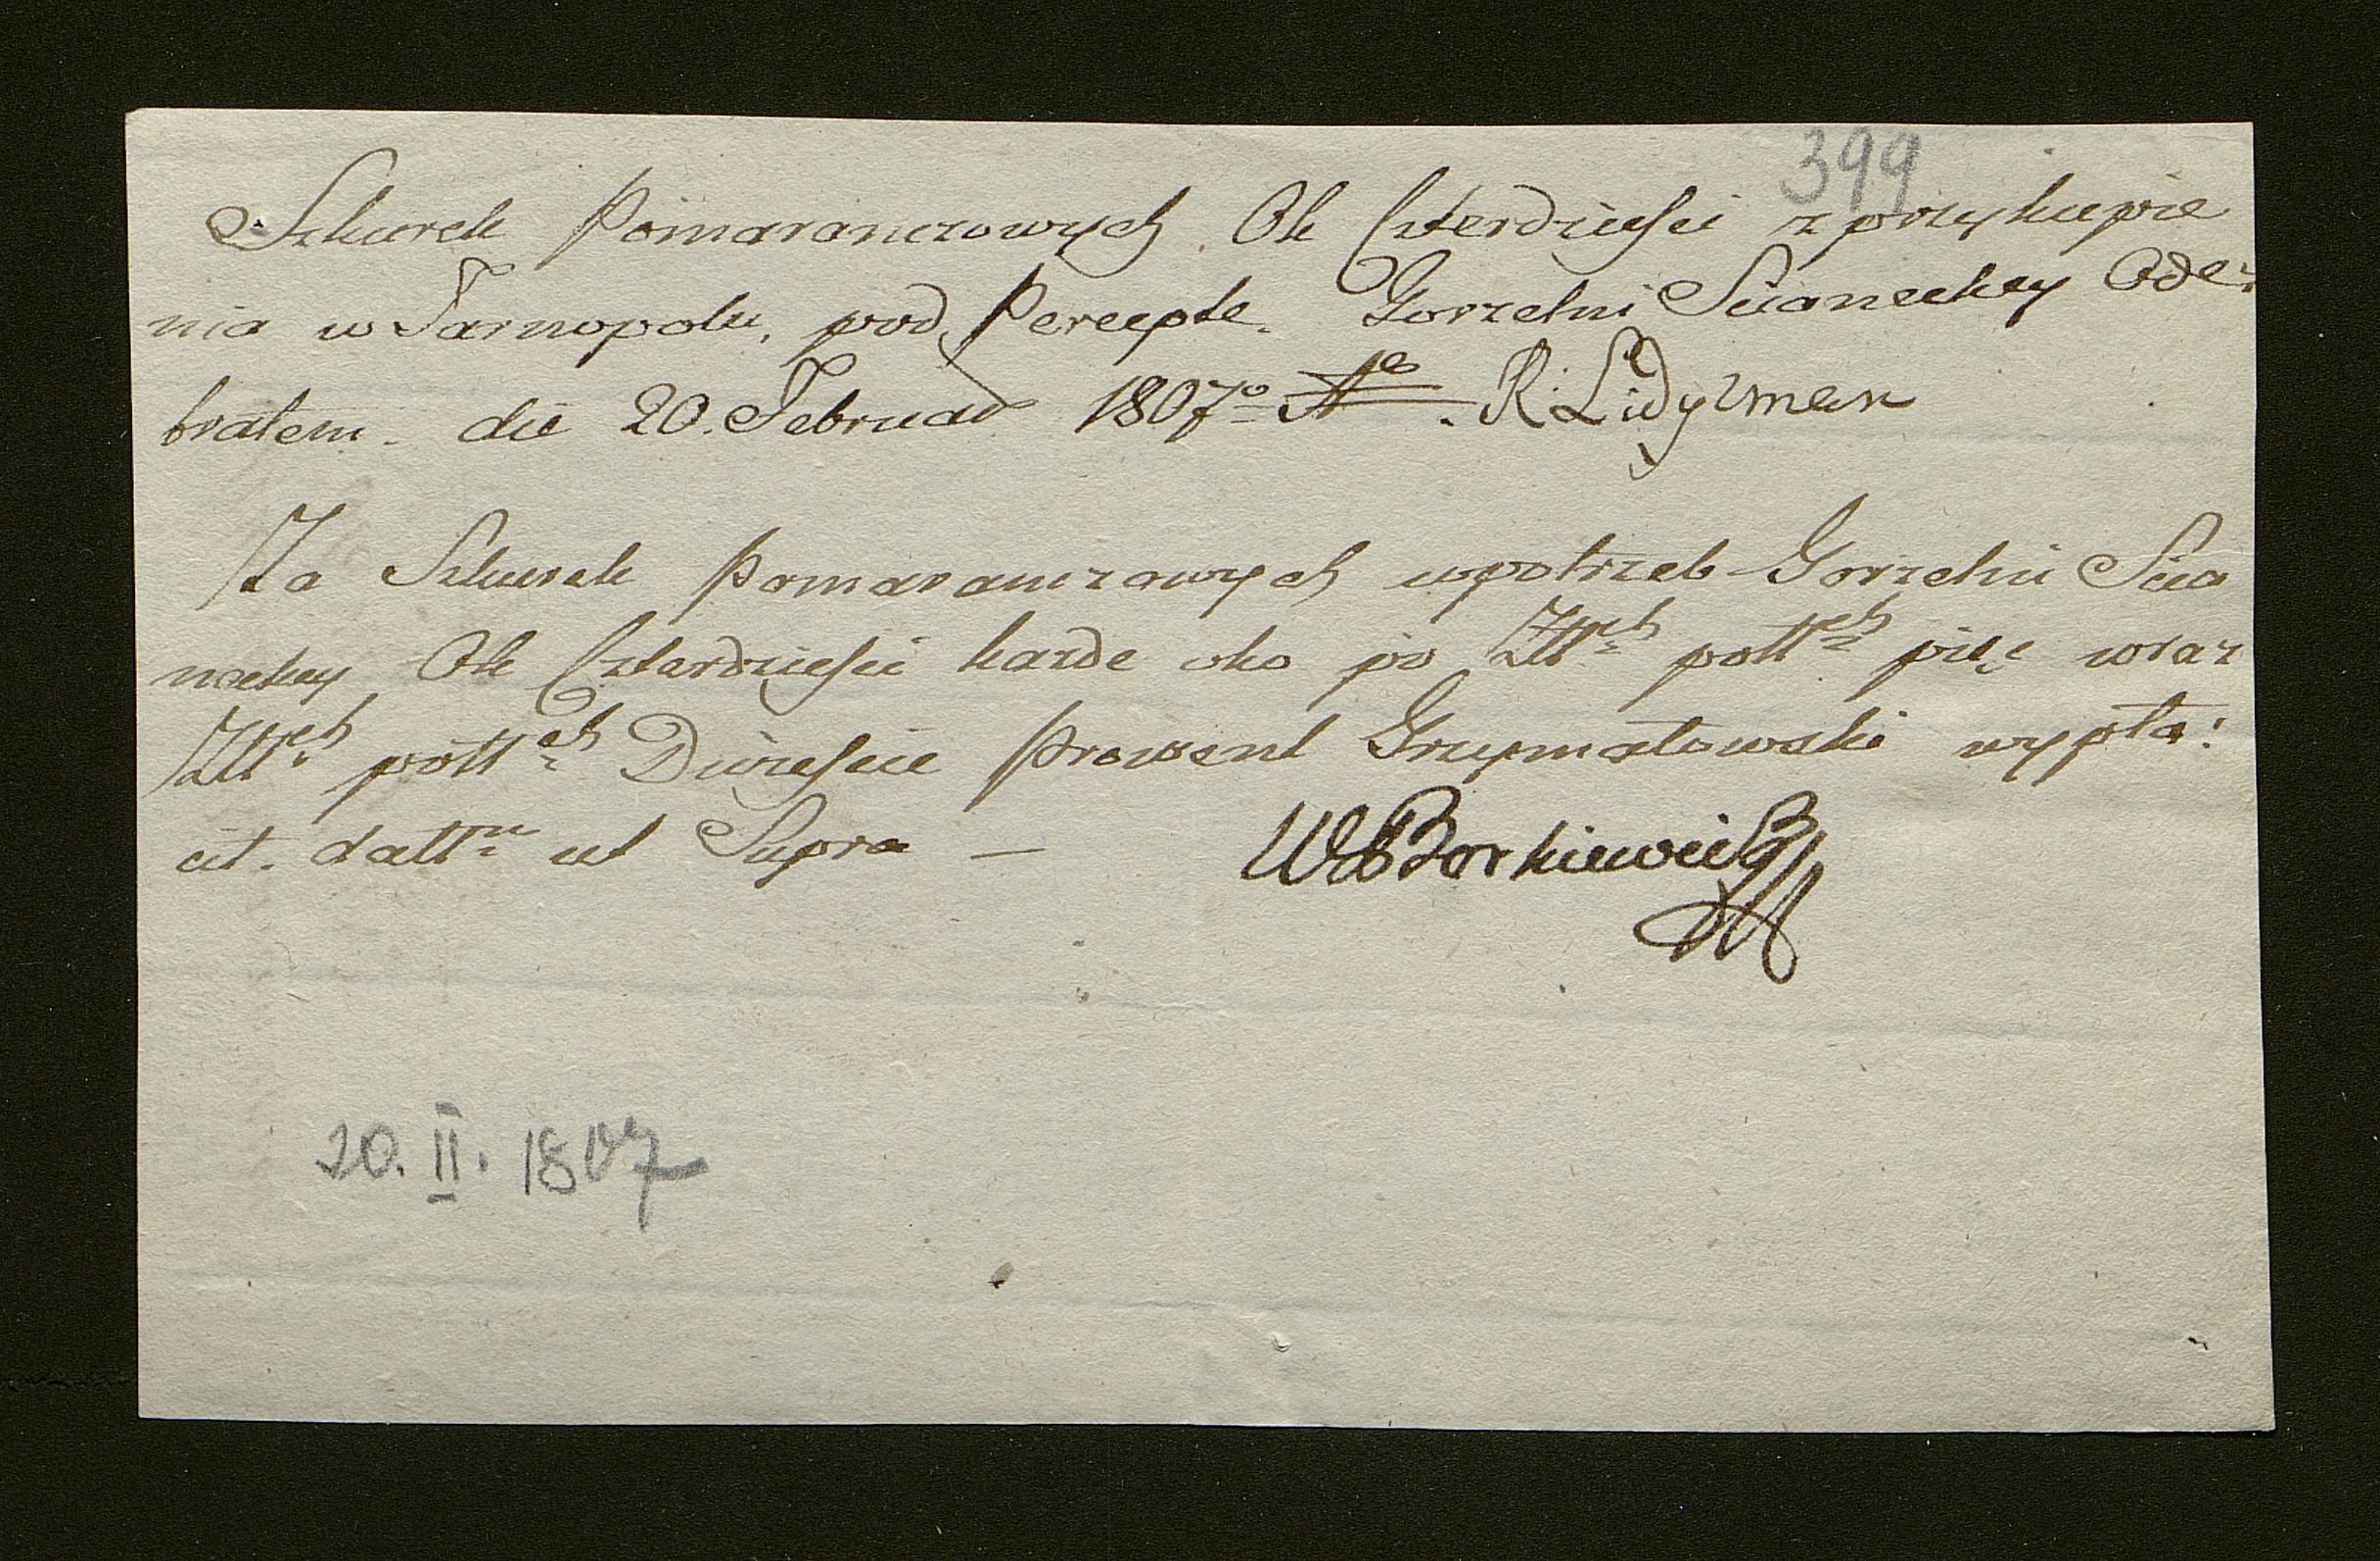 399
Szkurek Pomaranczowych Ok Czterdziesci z przykupie
nia w Tarnopolu, pod Percepte Gorzelni Scianeckey Ode:
brałem. die 20. Februar 1807º R: Lidyzman
Za Szkurek Pomaranczowych upotrzeb Gorzelni Scia
neckey Ok Czterdziesci kazde oko po Złłch połłch pięc wraz
Złłch połłch Dwiescie Prowent Grzymałowski wypła:
cił. dattm ut Supra —
W Borkiewicz
20. II. 1807